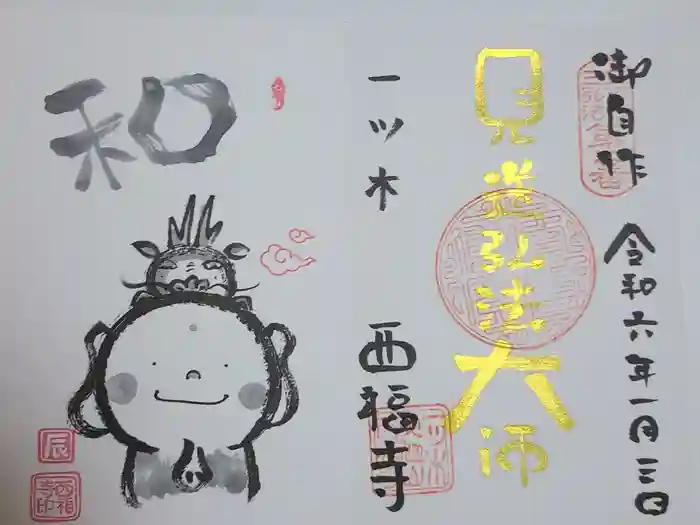 御自作
令和六年一月三日
見返弘法大師
一ツ木
西福寺
和
辰
西福寺印